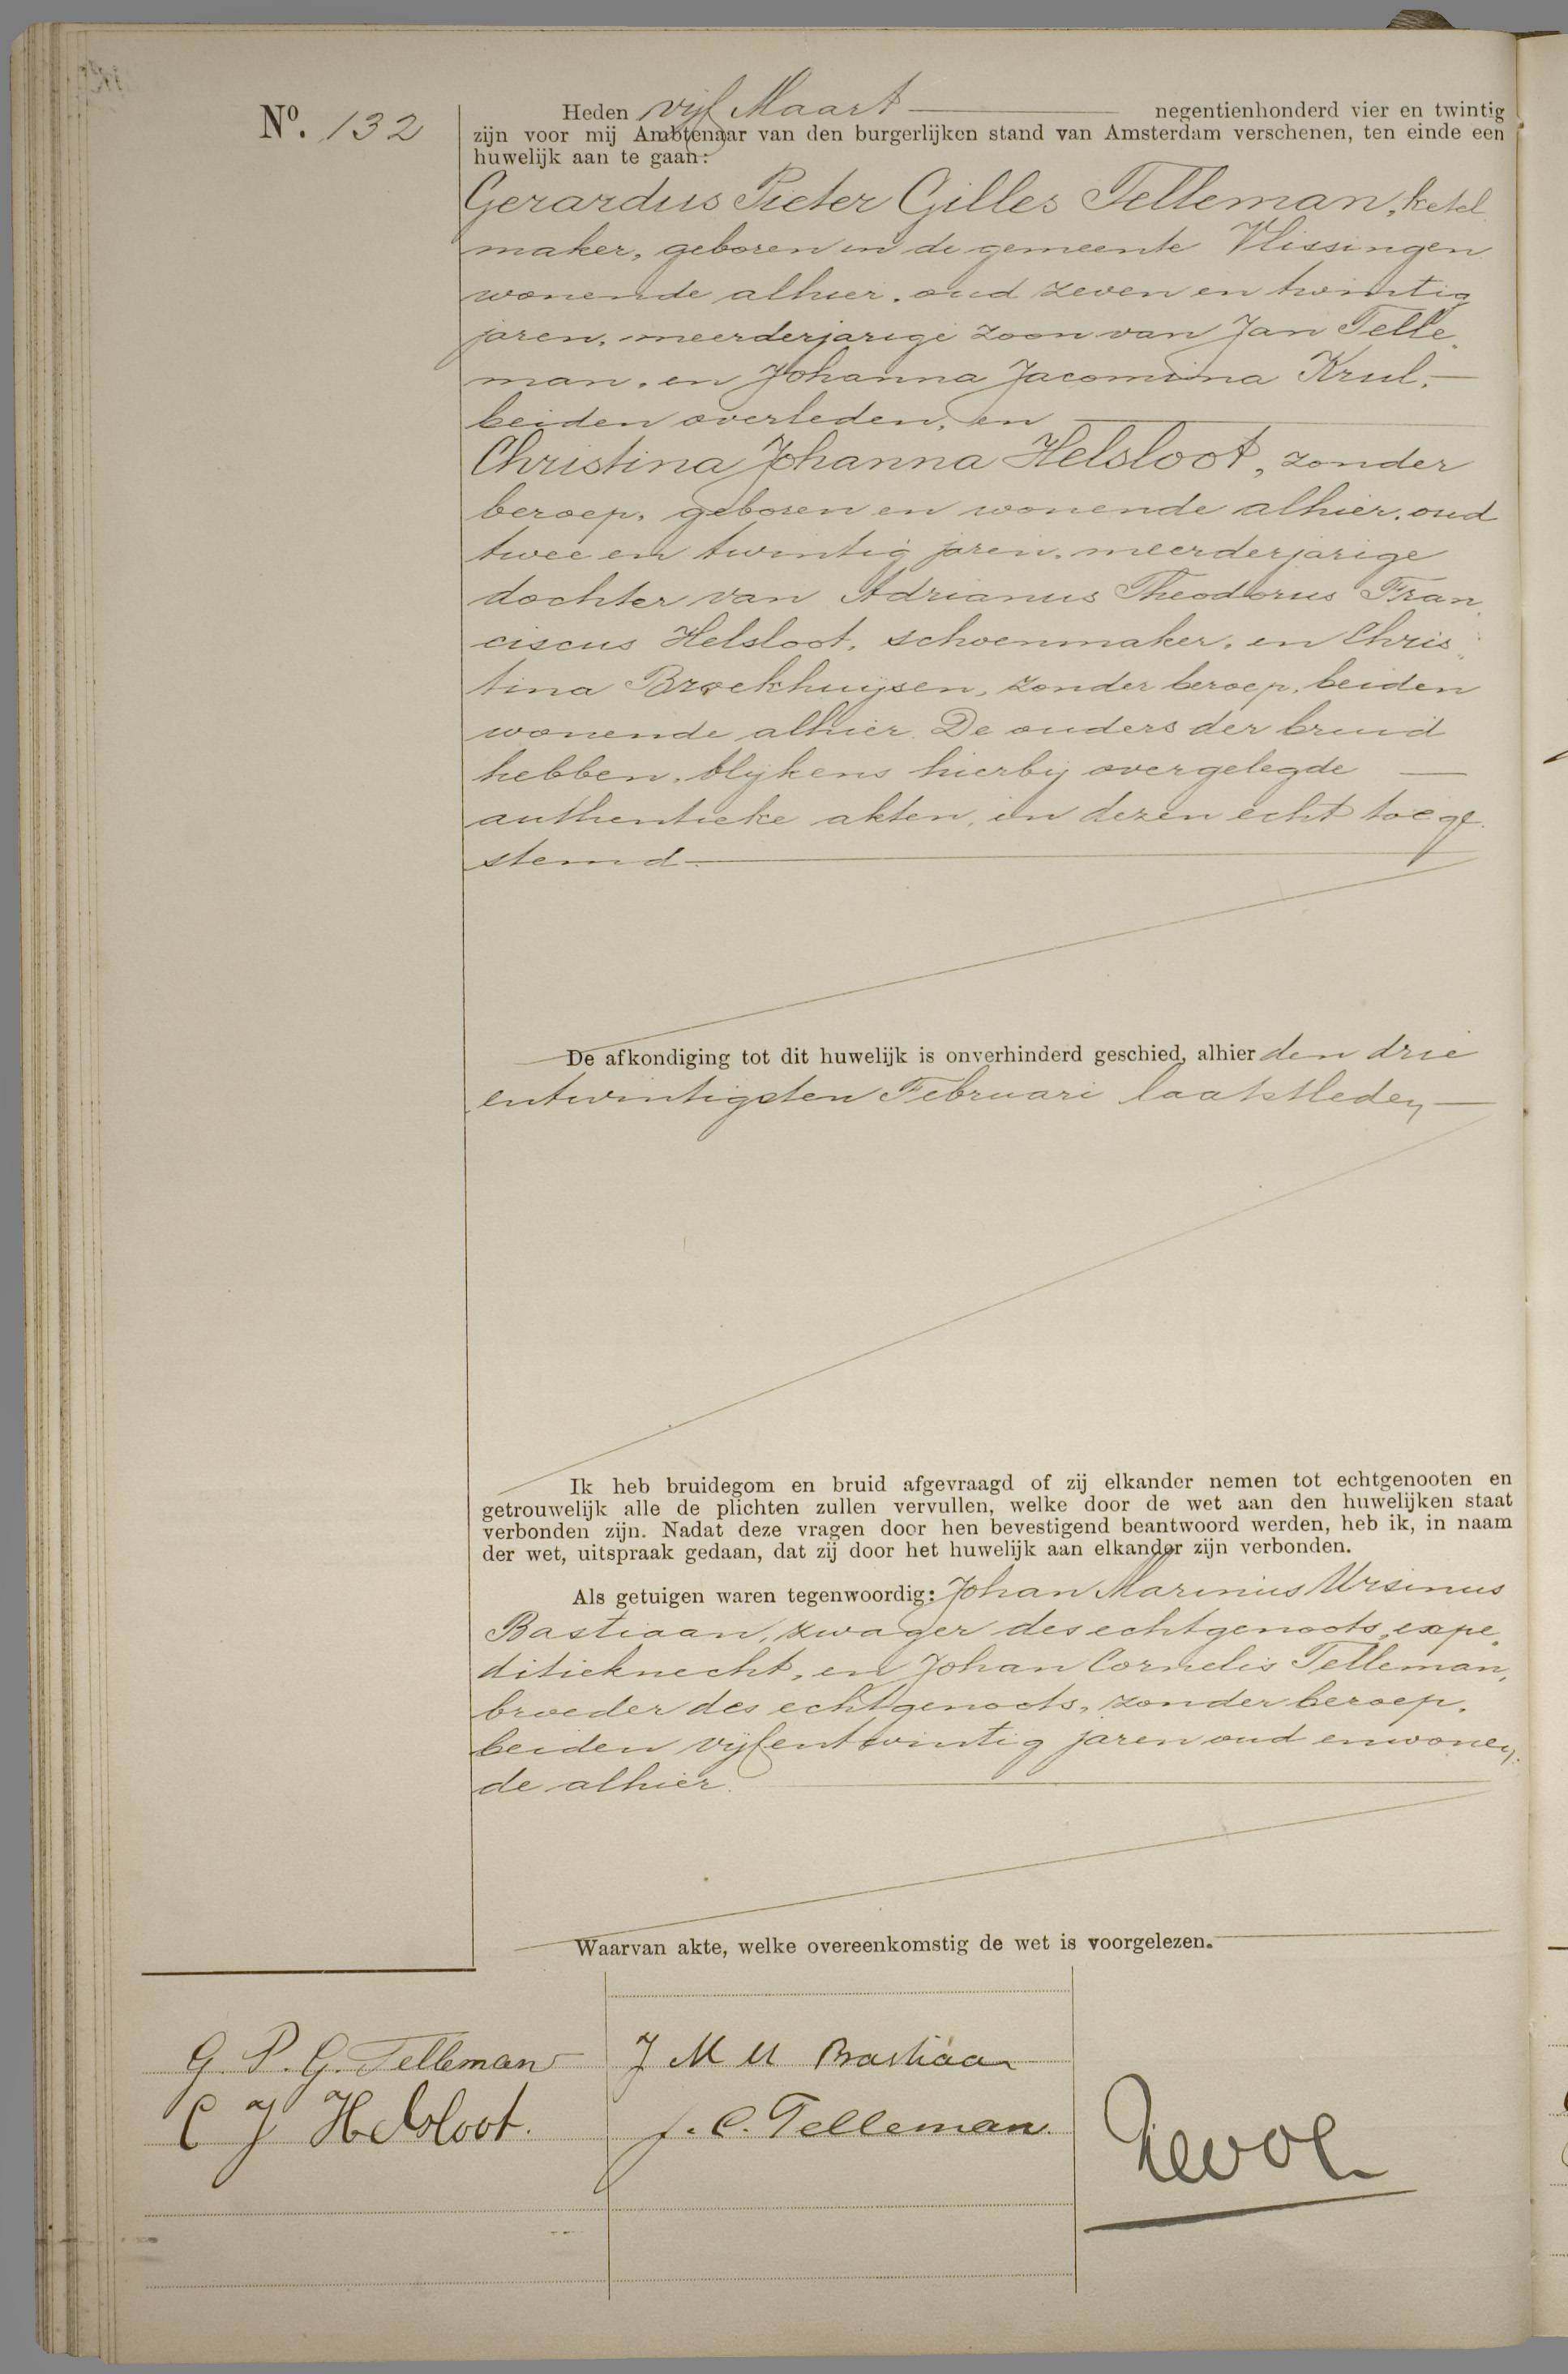 Nº. 132
Heden vijf Maart negentienhonderd vier en twintig
zijn voor mij Ambtenaar van den burgerlijken stand van Amsterdam verschenen, ten einde een
huwelijk aan te gaan:
Gerardus Pieter Gilles Telleman, ketel
maker, geboren in de gemeente Vlissingen
wonende alhier, oud zeven en twintig
jaren, meerderjarige zoon van Jan Telle
man, en Johanna Jacomina Krul,
beiden overleden, en
Christina Johanna Helsloot, zonder
beroep, geboren en wonende alhier, oud
twee en twintig jaren, meerderjarige
dochter van Adrianus Theodorus Fran
ciscus Helsloot, schoenmaker, en Chris
tina Broekhuijsen, zonder beroep, beiden
wonende alhier. De ouders der bruid
hebben, blijkens hierbij overgelegde
authentieke akten, in dezen echt toege
stemd
De afkondiging tot dit huwelijk is onverhinderd geschied, alhier den drie
entwintigsten Februari laatstleden
Ik heb bruidegom en bruid afgevraagd of zij elkander nemen tot echtgenooten en
getrouwelijk alle de plichten zullen vervullen, welke door de wet aan den huwelijken staat
verbonden zijn. Nadat deze vragen door hen bevestigend beantwoord werden, heb ik, in naam
der wet, uitspraak gedaan, dat zij door het huwelijk aan elkander zijn verbonden.
Als getuigen waren tegenwoordig: Johan Marinus Ursinus
Bastiaan, zwager des echtgenoots, expe
ditieknecht, en Johan Cornelis Telleman,
broeder des echtgenoots, zonder beroep,
beiden vijfentwintig jaren oud en wonen
de alhier.
Waarvan akte, welke overeenkomstig de wet is voorgelezen.
G. P. G. Telleman
J M U Bastiaan
C J Helsloot.
J. C. Telleman.